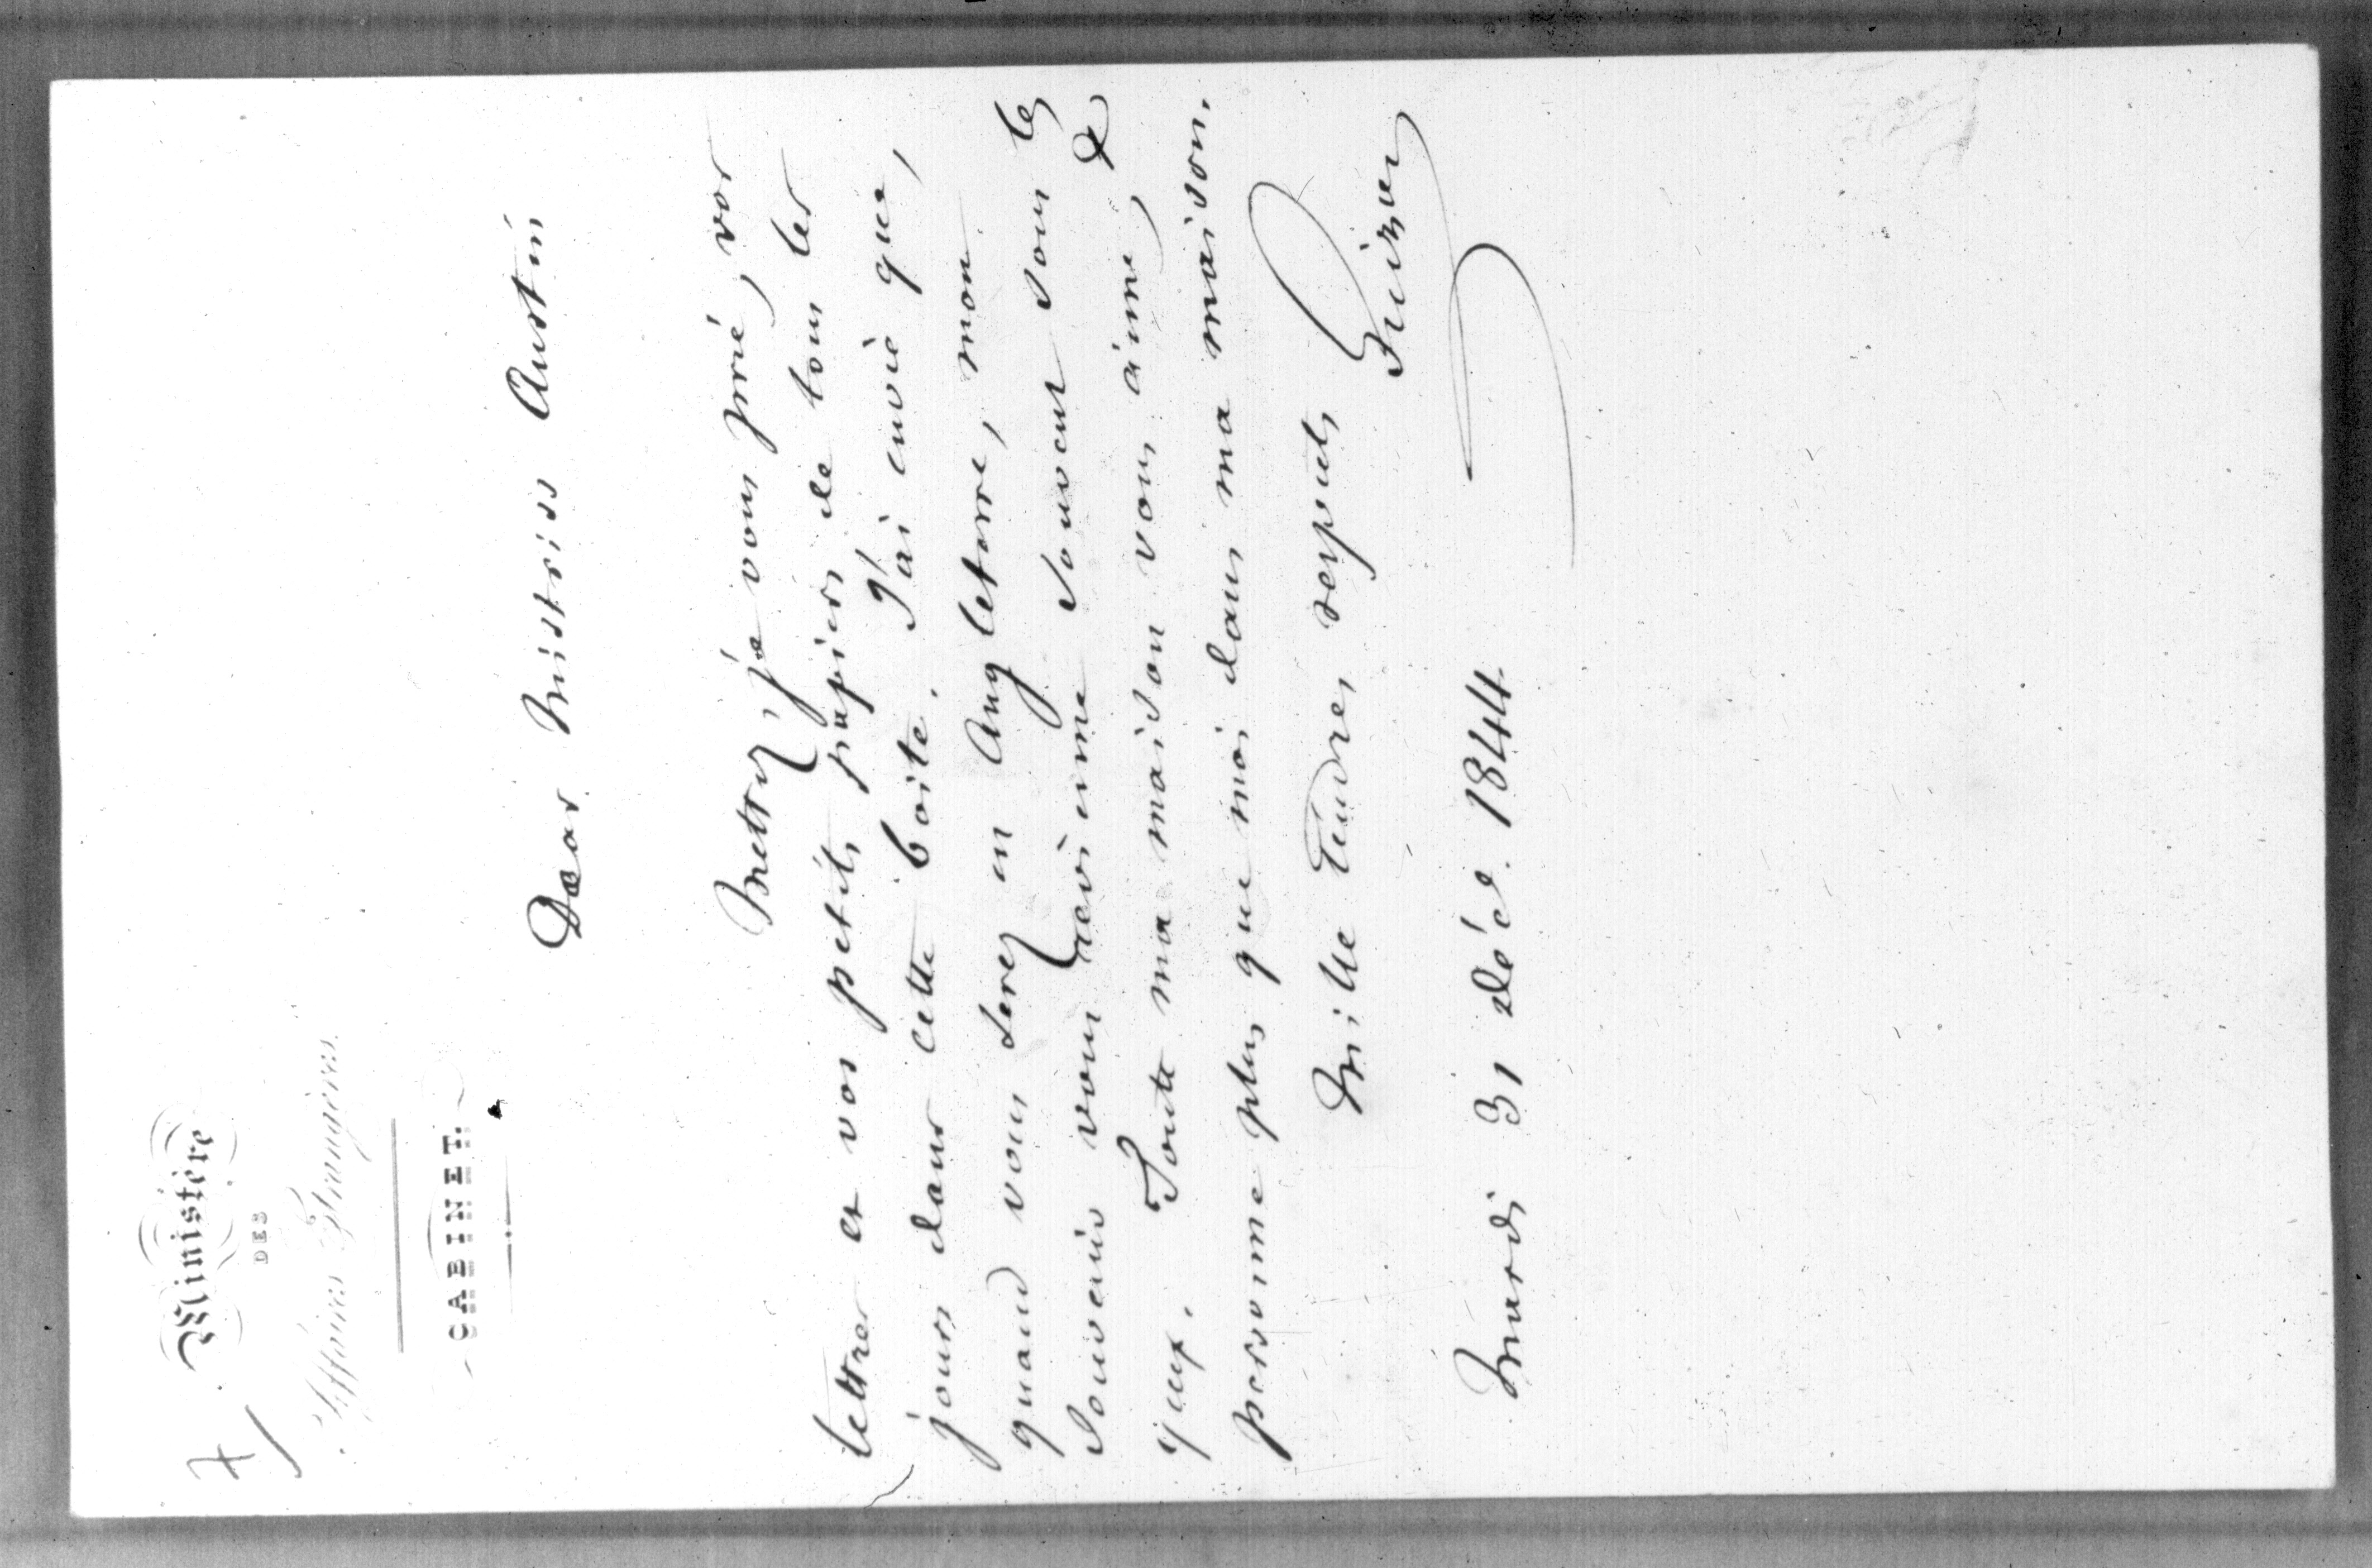 7
Ministère
DES
Affaires Etrangères.
CABINET.
Dear Mistriss Austin
Mettez, je vous prie, vos
lettres et vos petits papiers de tous les
jours dans cette boite. J'ai envie que,
quand vous serez en Angleterre, mon
souvenir vous revienne souvent sous les
yeux. Toute ma maison vous aime, &
personne plus que moi dans ma maison.
Mille tendres respects
Guizot
Mardi 31 déc. 1844